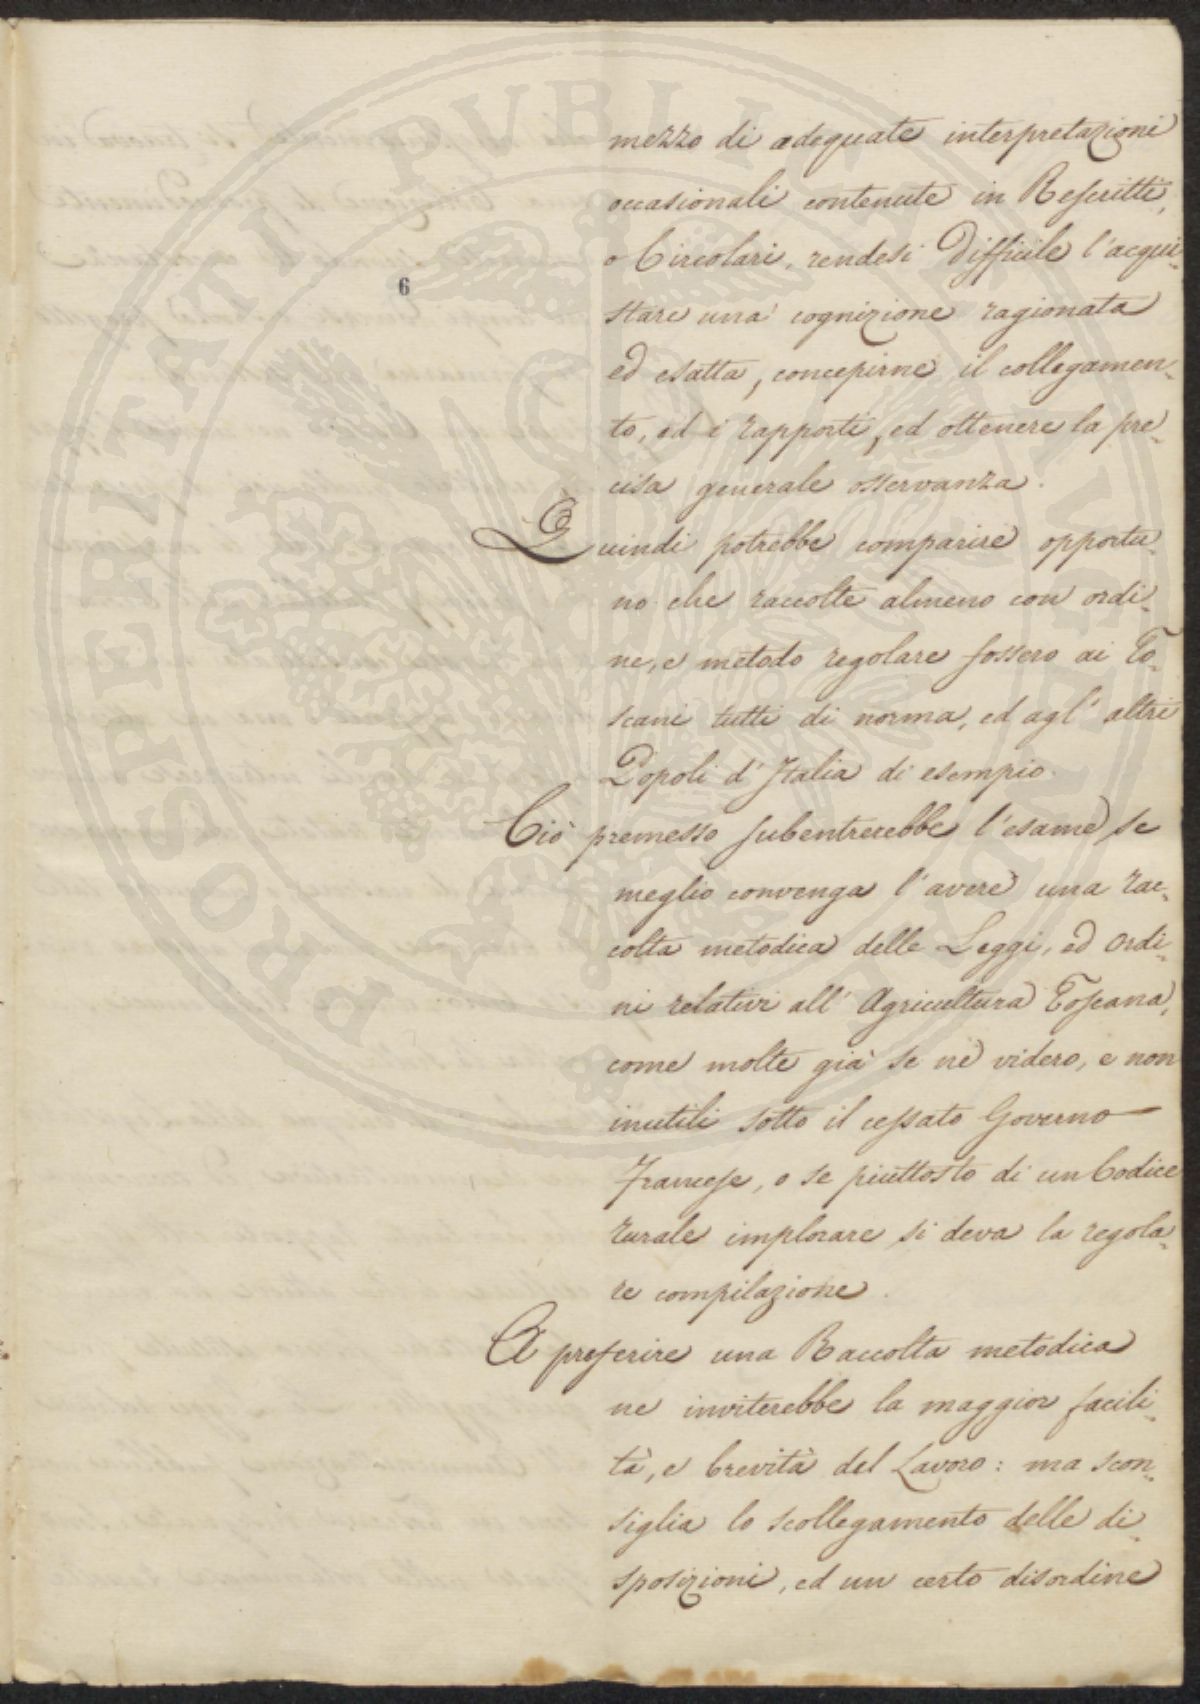 PROSPERITATI PUBLICAE
6
mezzo di adeguate interpretazioni
occasionali contenute in Rescritti,
o Circolari, rendesi difficile l'acqui-
stare una cognizione ragionata
ed esatta, concepirne il collegamen-
to, ed i rapporti, ed ottenere la pre-
cisa generale osservanza.
Quindi potrebbe comparire opportu-
no che raccolte almeno con ordi-
ne, e metodo regolare fossero ai To-
scani tutti di norma, ed agl' altri
Popoli d' Italia di esempio.
Ciò premesso subentrerebbe l'esame se
meglio convenga l'avere una rac-
colta metodica delle Leggi, ed ordi-
ni relativi all' Agricultura Toscana,
come molte già se ne videro, e non
inutili sotto il cessato Governo
Francese, o se piuttosto di un Codice
rurale implorare si deva la regola-
re compilazione.
A preferire una Raccolta metodica
ne inviterebbe la maggior facili-
tà, e brevità del Lavoro: ma scon-
siglia lo scollegamento delle di-
sposizioni, ed un certo disordine